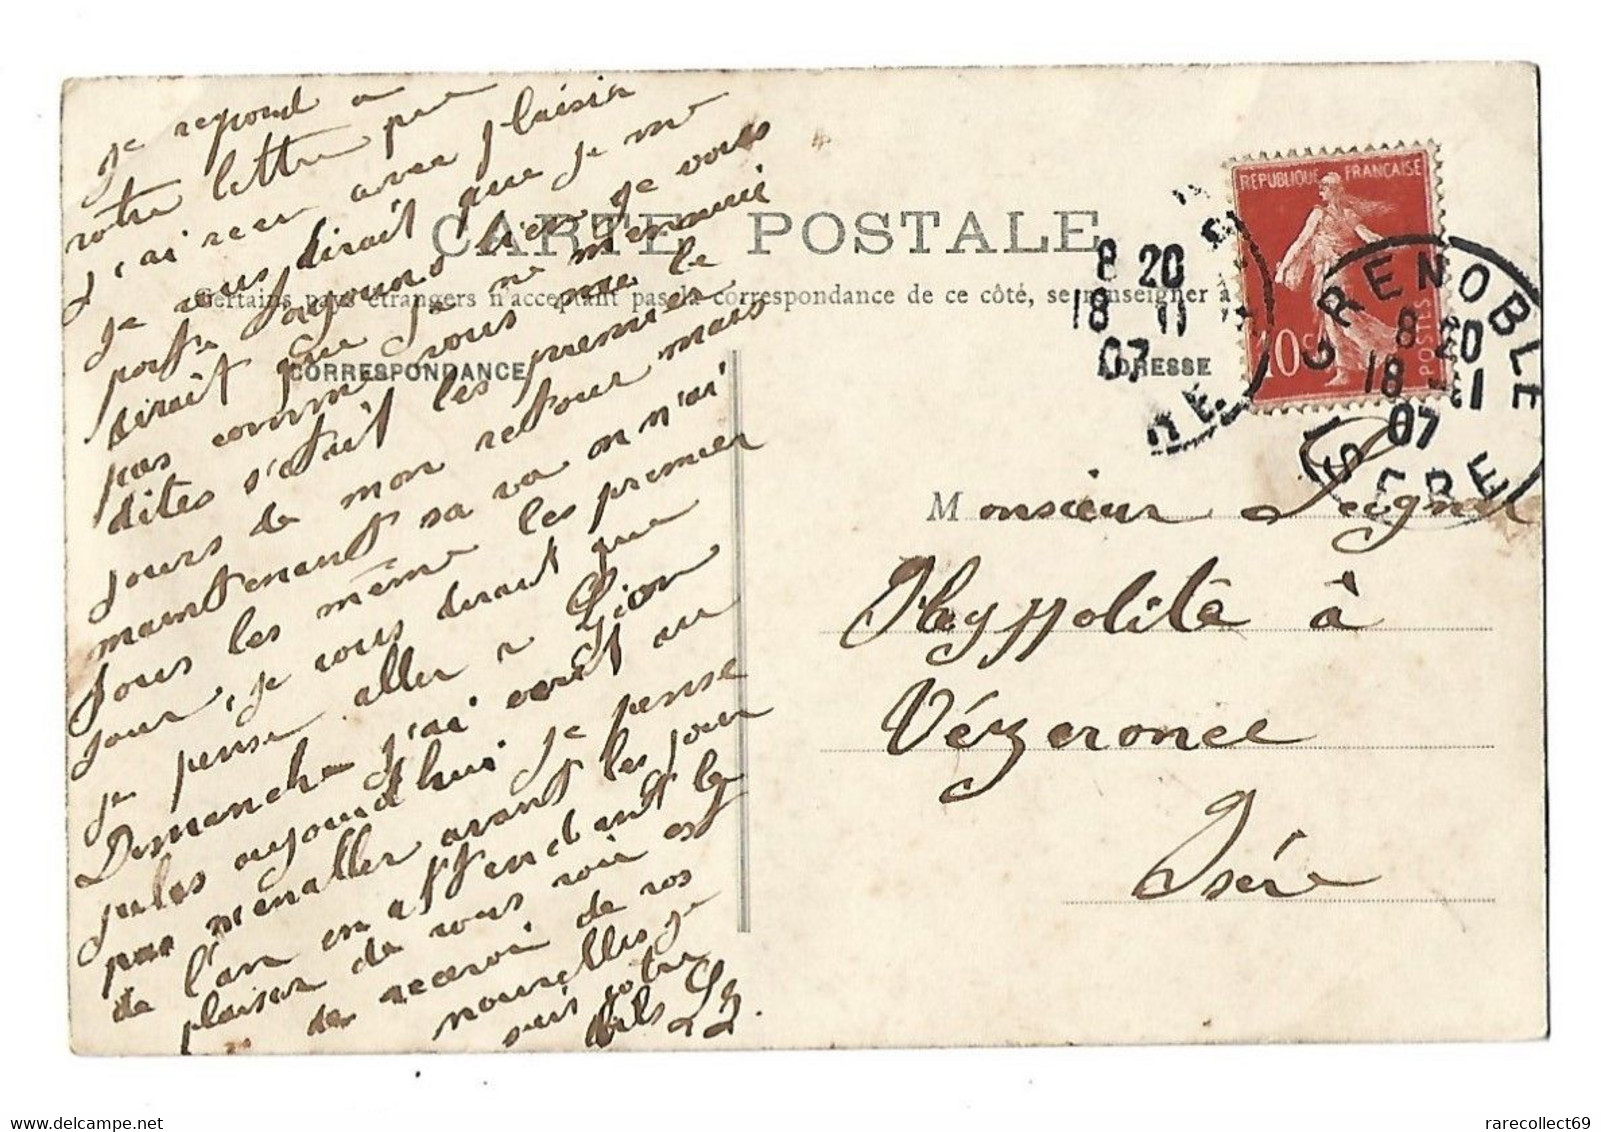 Je repond a
votre lettre que
j'ai recu avec plaisir
je vous dirait que je me
porte toujours bien je vous
dirait que je ne m'enuui
pas comme vous me le
dites s'etait les premier
jours de mon retour mais
maintenant sa va on n'ai
tous les même les premier
jour, je vous dirait que
je pense aller a Lion
Dimanche j'ai ecrit au
jules aujourd'hui je pense
pas m'enaller avant les jour
de l'an en attendant le
plaisir de vous voir et
de recevoir de vos
nouvelles je
suis votre
fils
CARTE POSTALE
Certains pays étrangers n'acceptent pas la correspondance de ce côté, se renseigner à
CORRESPONDANCE
ADRESSE
8 20
18 11
07
REPUBLIQUE FRANÇAISE
10 c
POSTES
GRENOBLE
8 20
18 - 11
07
ISERE
Monsieur
Hyppolite à
Vézeronce
Isère
rarecollect69